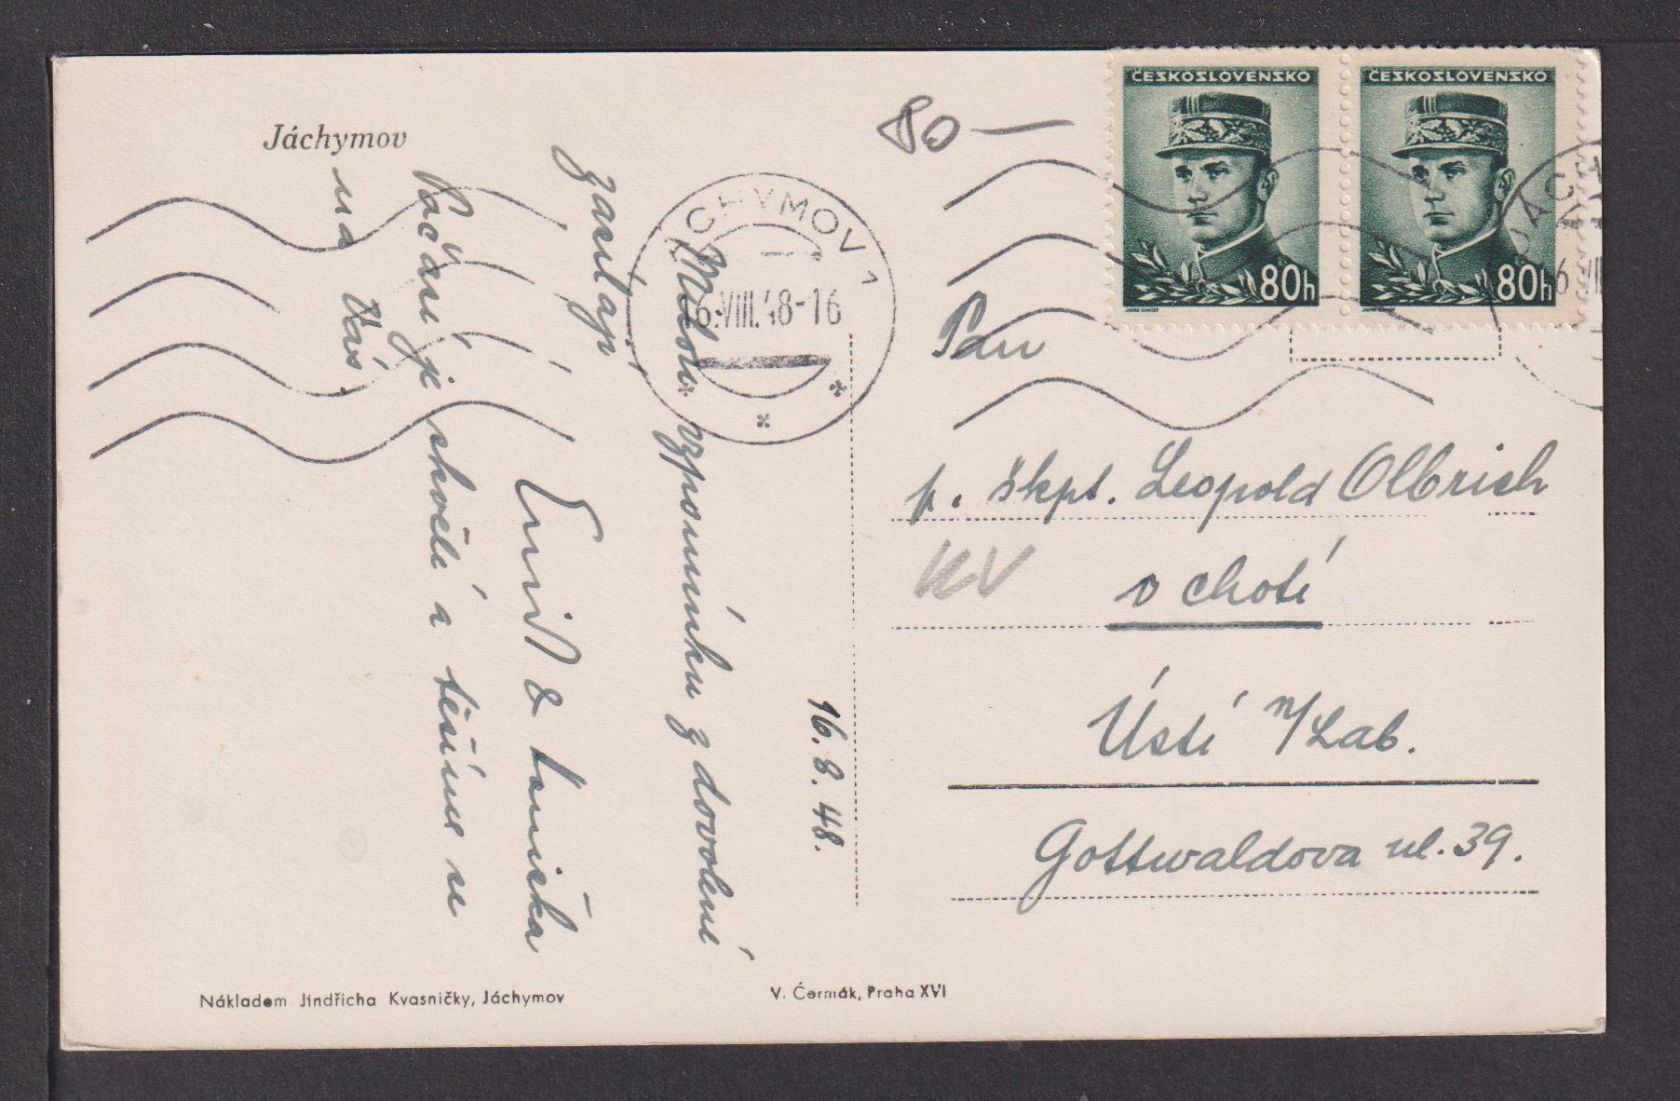 Jáchymov
80 —
ČESKOSLOVENSKO
80h
ČESKOSLOVENSKO
80h
JÁCHYMOV 1
6.VIII.48-16
JÁCH
6.VIII
16. 8. 48.
Milou vzpomínku z dovolené
zasílají
Emil & Anička
Počasí je skvělé a těšíme se
na Vás.
Pan
p. škpt. Leopold Olbrich
KV
s chotí
Ústí n/Lab.
Gottwaldova ul. 39.
Nákladem Jindřicha Kvasničky, Jáchymov
V. Čermák, Praha XVI